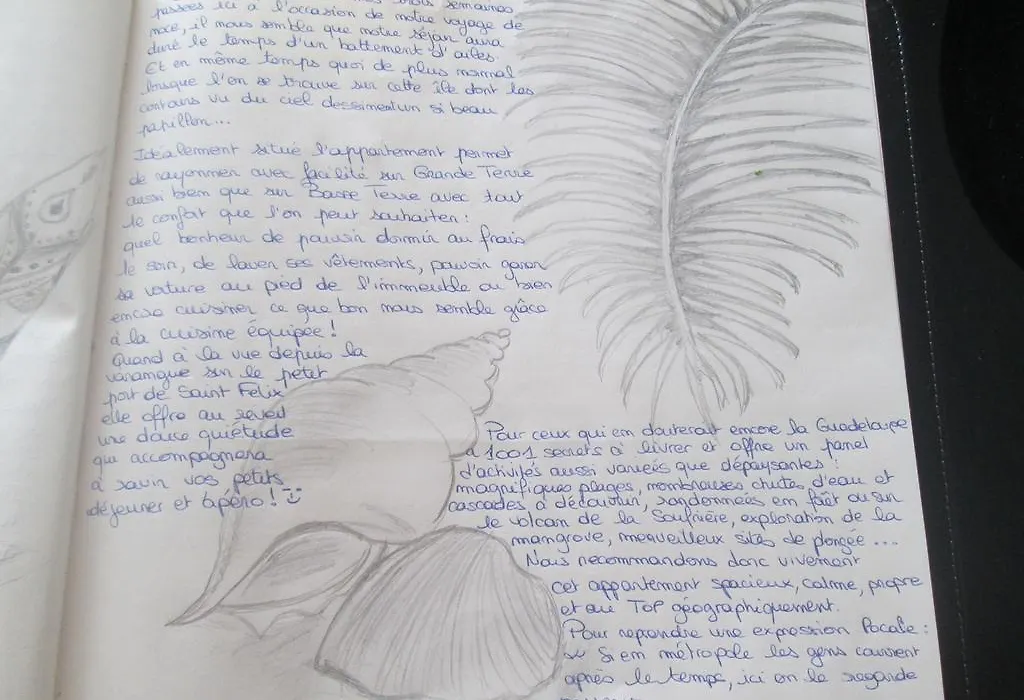 passées ici à l'occasion de notre voyage de
noce, il nous semble que notre séjour aura
duré le temps d'un battement d'ailes.
Et en même temps quoi de plus normal
lorsque l'on se trouve sur cette île dont les
contours vu du ciel dessinent un si beau
papillon...
Idéalement situé l'appartement permet
de rayonner avec facilité sur Grande Terre
aussi bien que sur Basse Terre avec tout
le confort que l'on peut souhaiter :
quel bonheur de pouvoir dormir au frais
le soir, de laver ses vêtements, pouvoir garer
sa voiture au pied de l'immeuble ou bien
encore cuisiner ce que bon nous semble grâce
à la cuisine équipée !
Quand à la vue depuis la
varangue sur le petit
port de Saint Félix
elle offre au réveil
une douce quiétude
qui accompagnera
à ravir vos petits
déjeuner et apéro ! :)
Pour ceux qui en douterait encore la Guadeloupe
a 1001 secrets à livrer et offre un panel
d'activités aussi variées que dépaysantes :
magnifiques plages, nombreuses chutes d'eau et
cascades à découvrir, randonnées en forêt ou sur
le volcan de la Soufrière, exploration de la
mangrove, merveilleux sites de plongée ...
Nous recommandons donc vivement
cet appartement spacieux, calme, propre
et au TOP géographiquement.
Pour reprendre une expression locale :
" Si en métropole les gens courent
après le temps, ici on le regarde